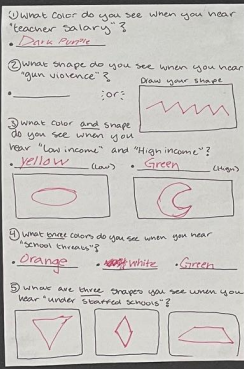 ① What color do you see when you hear
"teacher salary"?
• Dark Purple
② What shape do you see when you hear
"gun violence"?
Draw your shape
• ________ :or:
③ What color and shape
do you see when you
hear "Low income" and "High income"?
• yellow (Low) • Green (High)
④ What three colors do you see when you hear
"school threats"?
• Orange • white • Green
⑤ What are three shapes you see when you
hear "under staffed schools"?